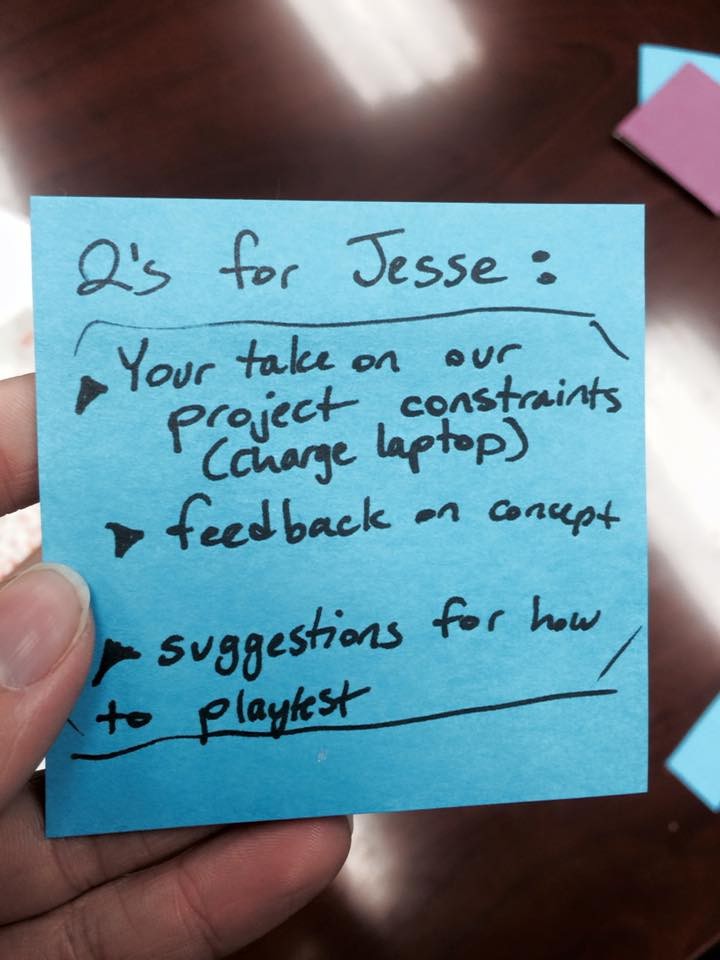 Q's for Jesse:
Your take on our
project constraints
(charge laptop)
feedback on concept
suggestions for how
to playtest